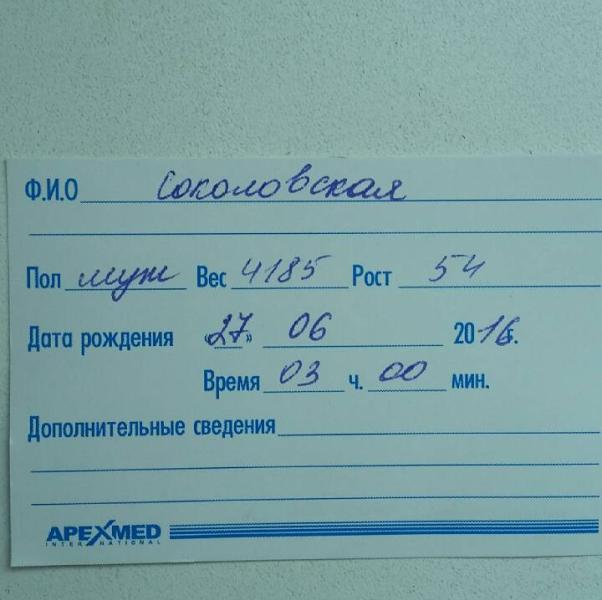 Ф.И.О Соколовская
Пол муж Вес 4185 Рост 54
Дата рождения «27» 06 2016г.
Время 03 ч. 00 мин.
Дополнительные сведения
APEXMED
INTERNATIONAL